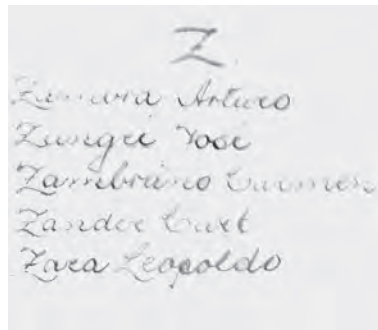 Z
Arturo
Zungri José
Zambrano Carmen
Zander Curt
Zara Leopoldo